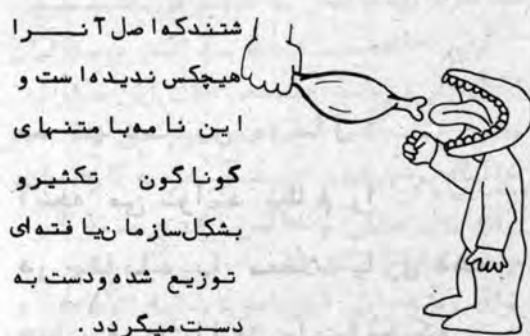 شتندکه اصل آنرا
هیچکس ندیده است و
این نامه با متنهای
گوناگون تکثیر و
بشکل سازمان یافته ای
توزیع شده ودست به
دست میگردد.